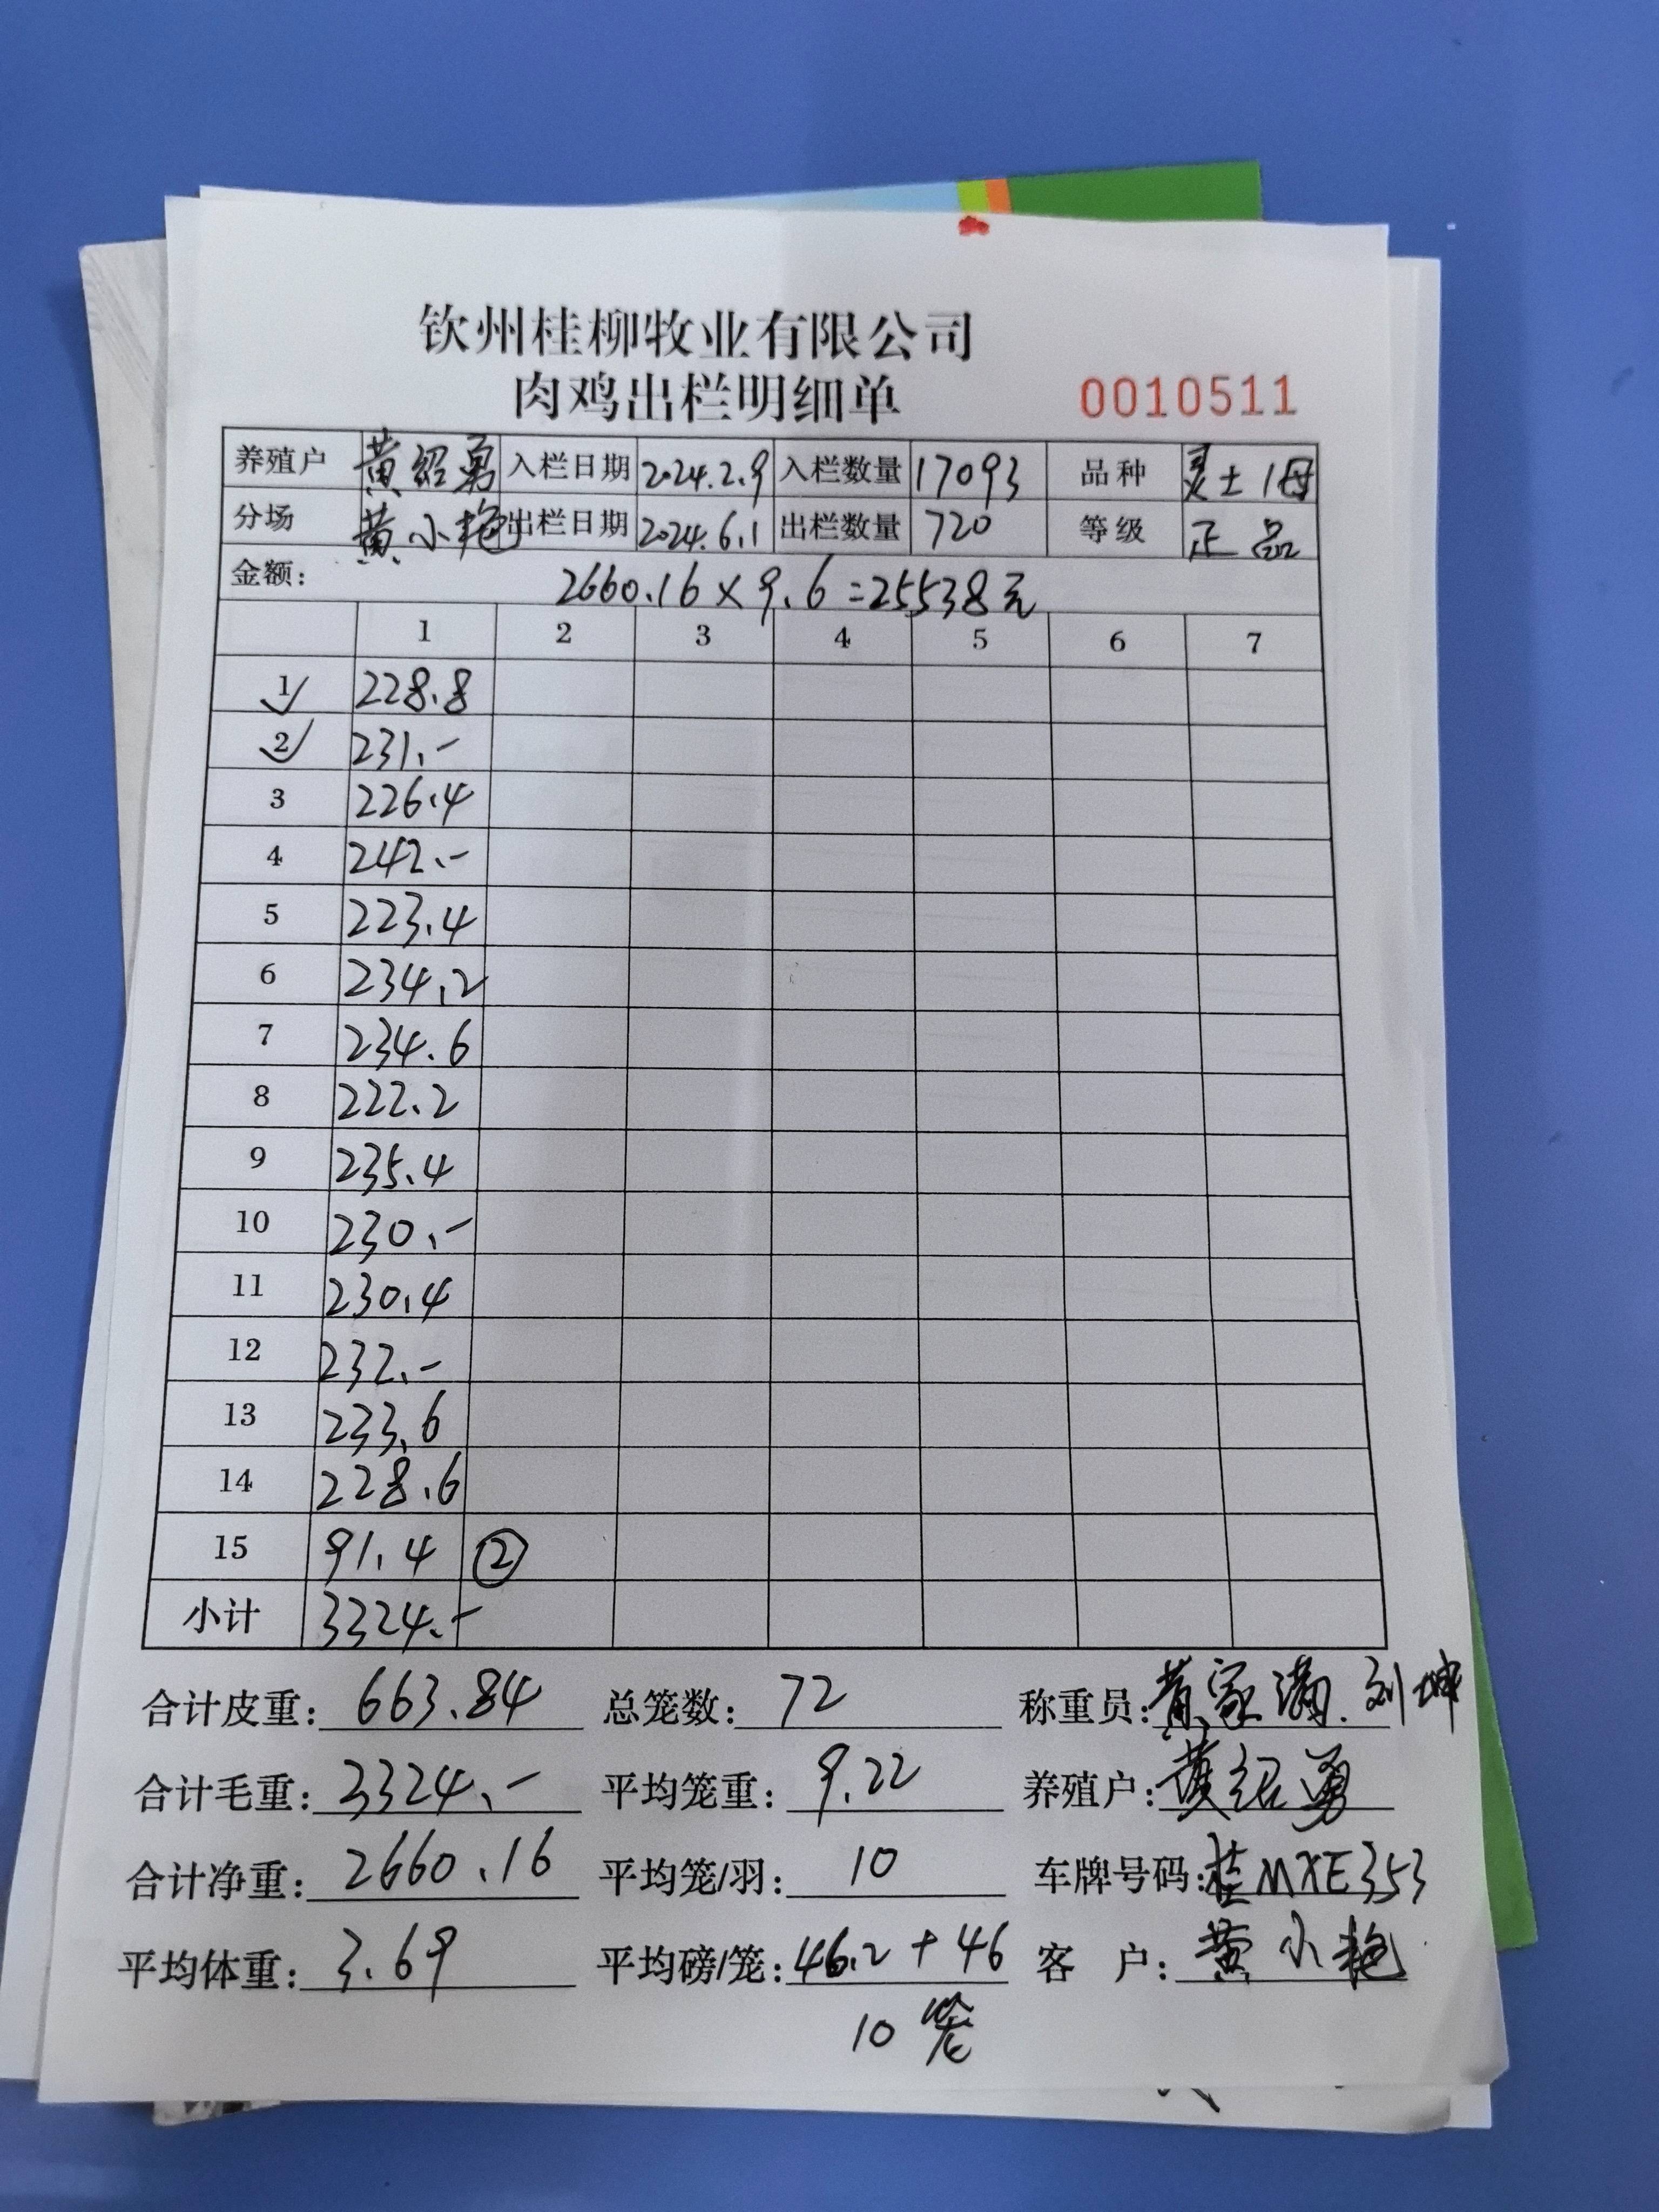 钦州桂柳牧业有限公司
肉鸡出栏明细单 0010511
养殖户 黄绍勇 入栏日期 2024.2.9 入栏数量 17093 品种 灵土1母
分场 黄小艳 出栏日期 2024.6.1 出栏数量 720 等级 正品
金额: 2660.16×9.6=25538元
1 2 3 4 5 6 7
1 228.8
2 231.-
3 226.4
4 242.-
5 223.4
6 234.2
7 234.6
8 222.2
9 235.4
10 230.-
11 230.4
12 232.-
13 233.6
14 228.6
15 91.4 ②
小计 3324.-
合计皮重: 663.84 总笼数: 72 称重员: 黄家满.刘坤
合计毛重: 3324.- 平均笼重: 9.22 养殖户: 黄绍勇
合计净重: 2660.16 平均笼/羽: 10 车牌号码: 桂MXE353
平均体重: 3.69 平均磅/笼: 46.2+46 客户: 黄小艳
10笼